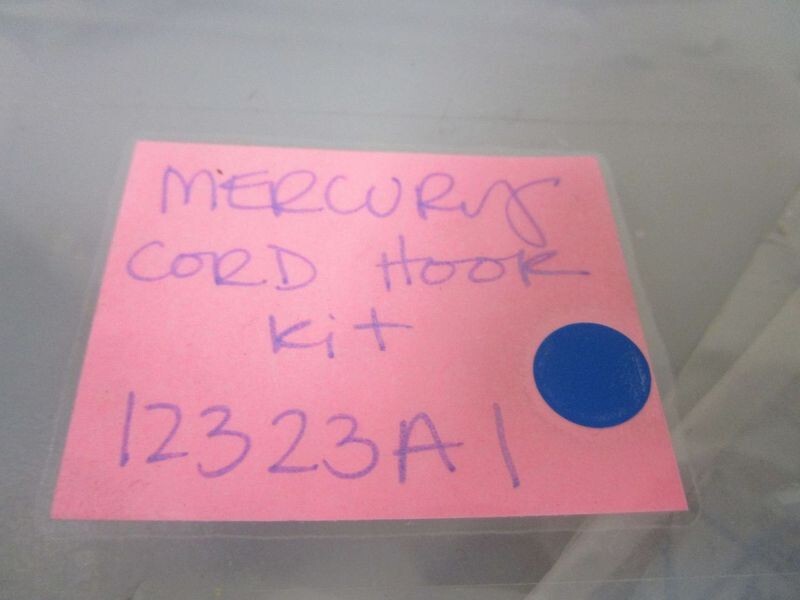 MERCURY
CORD HOOK
Kit
12323A1